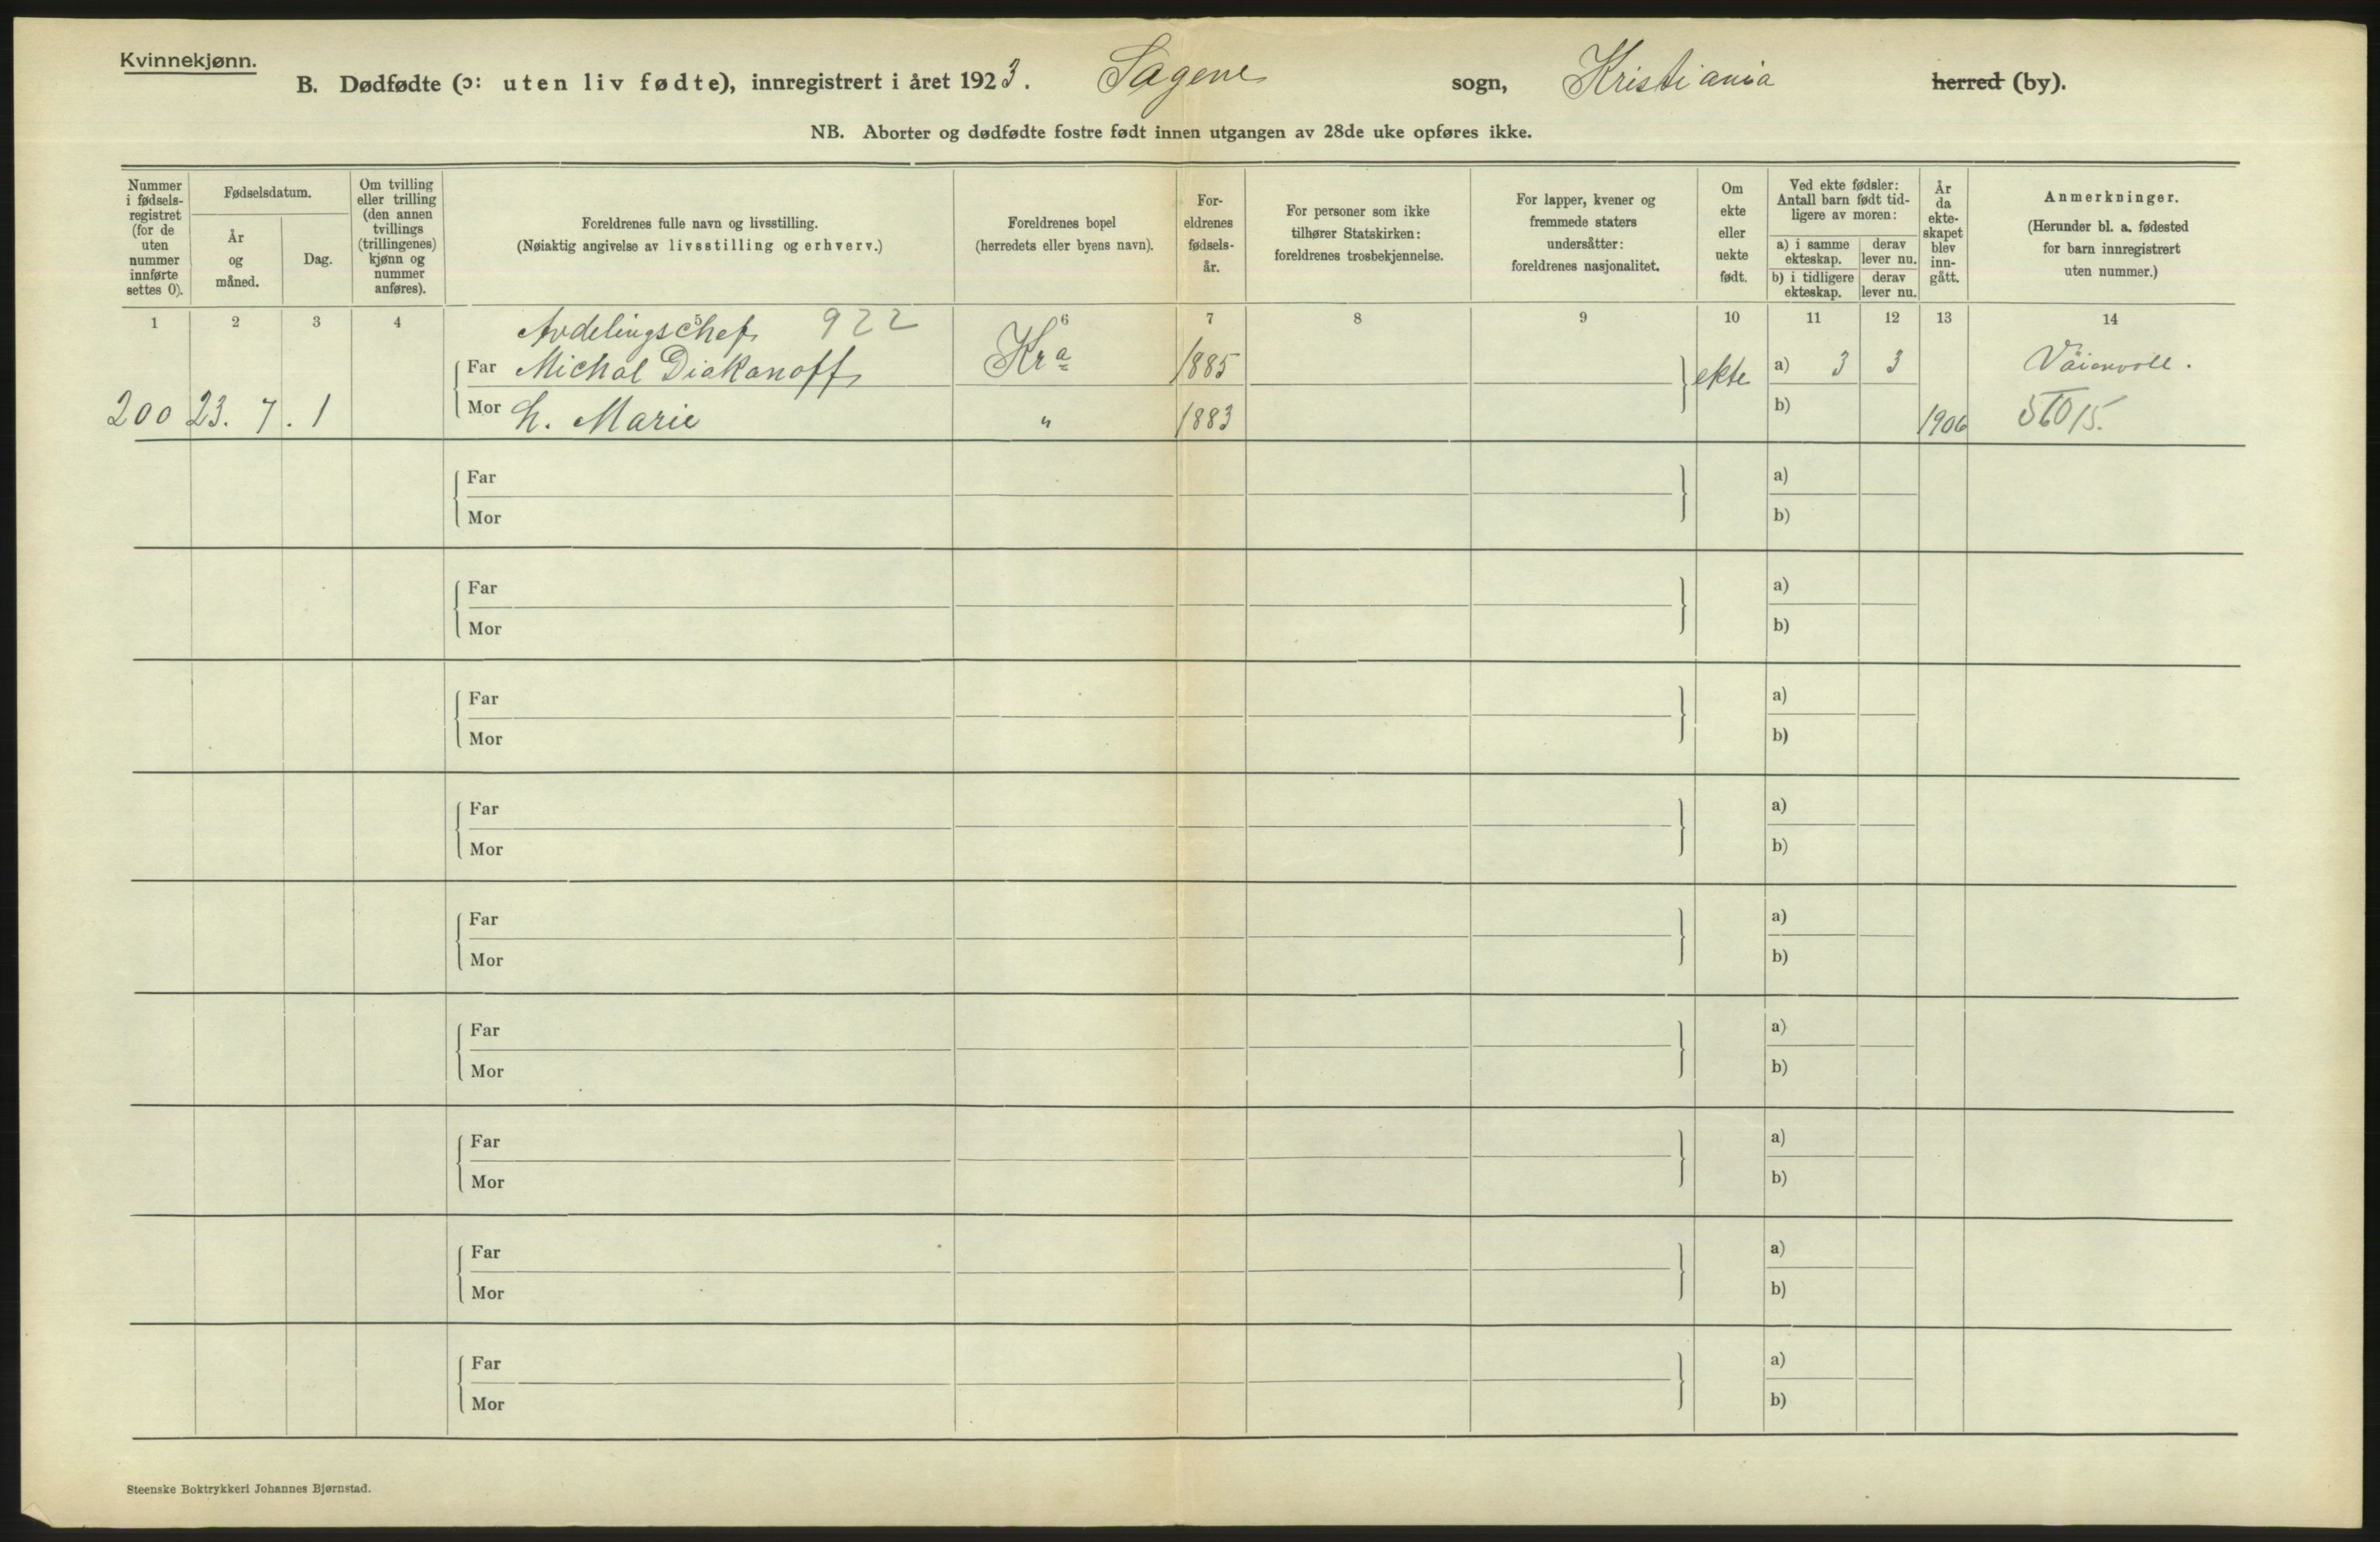 Kvinnekjønn.
B. Dødfødte (ɔ: uten liv fødte), innregistrert i året 1923. Sagene sogn, Kristiania herred (by).
NB. Aborter og dødfødte fostre født innen utgangen av 28de uke opføres ikke.
Nummer i fødsels- registret (for de uten nummer innførte settes 0).
Fødselsdatum.
År og måned.
Dag.
Om tvilling eller trilling (den annen tvillings (trillingenes) kjønn og nummer anføres).
Foreldrenes fulle navn og livsstilling.
(Nøiaktig angivelse av livsstilling og erhverv.)
Foreldrenes bopel
(herredets eller byens navn).
For- eldrenes fødsels- år.
For personer som ikke tilhører Statskirken: foreldrenes trosbekjennelse.
For lapper, kvener og fremmede staters undersåtter: foreldrenes nasjonalitet.
Om ekte eller uekte født.
Ved ekte fødsler: Antall barn født tid- ligere av moren:
a) i samme ekteskap.
derav lever nu.
b) i tidligere ekteskap.
derav lever nu.
År da ekte- skapet blev inn- gått.
Anmerkninger.
(Herunder bl. a. fødested for barn innregistrert uten nummer.)
1 2 3 4 5 6 7 8 9 10 11 12 13 14
Avdelingschef 922
Far Michal Diakanoff Kra 1885 ekte a) 3 3
200 23. 7. 1 Mor h. Marie " 1883 b) 1906
Far a)
Mor b)
Far a)
Mor b)
Far a)
Mor b)
Far a)
Mor b)
Far a)
Mor b)
Far a)
Mor b)
Far a)
Mor b)
Far a)
Mor b)
Far a)
Mor b)
Steenske Boktrykkeri Johannes Bjørnstad.